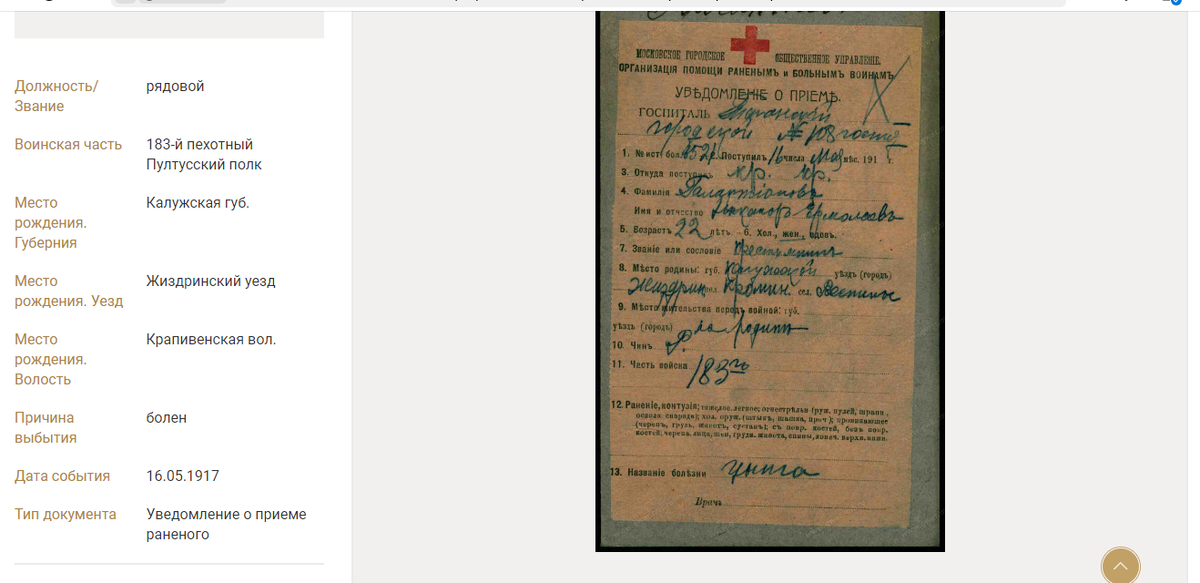 Должность/
Звание
рядовой
Воинская часть
183-й пехотный
Пултусский полк
Место
рождения.
Губерния
Калужская губ.
Место
рождения. Уезд
Жиздринский уезд
Место
рождения.
Волость
Крапивенская вол.
Причина
выбытия
болен
Дата события
16.05.1917
Тип документа
Уведомление о приеме
раненого
МОСКОВСКОЕ ГОРОДСКОЕ ОБЩЕСТВЕННОЕ УПРАВЛЕНИЕ.
ОРГАНИЗАЦІЯ ПОМОЩИ РАНЕНЫМЪ и БОЛЬНЫМЪ ВОИНАМЪ
УВѢДОМЛЕНІЕ О ПРІЕМѢ.
ГОСПИТАЛЬ
городской №
1. № ист. бол. Поступилъ 16 числа Мая мѣс. 191 г.
3. Откуда поступилъ
4. Фамилія
Имя и отчество Никаноръ Ермолаевъ
5. Возрастъ 22 лѣтъ. 6. Хол., жен., вдовъ.
7. Званіе или сословіе крестьянинъ
8. Мѣсто родины: губ. Калужской уѣздъ (городъ)
Жиздрин. сел.
9. Мѣсто жительства передъ войной: губ.
уѣздъ (городъ) на родинѣ
10. Чинъ Р.
11. Часть войска 183го
12. Раненіе, контузія; тяжелое, легкое; огнестрѣльн (руж. пулей, шрапн.,
осколк снаряда); хол. оруж. (штыкъ, шашка, проч.); проникающее
(черепъ, грудь, животъ, суставъ); съ повр. костей, безъ повр.
костей; черепа, лица, шеи, груди, живота, спины, конеч. верхн. нижн.
13. Названіе болѣзни цынга
Врачъ